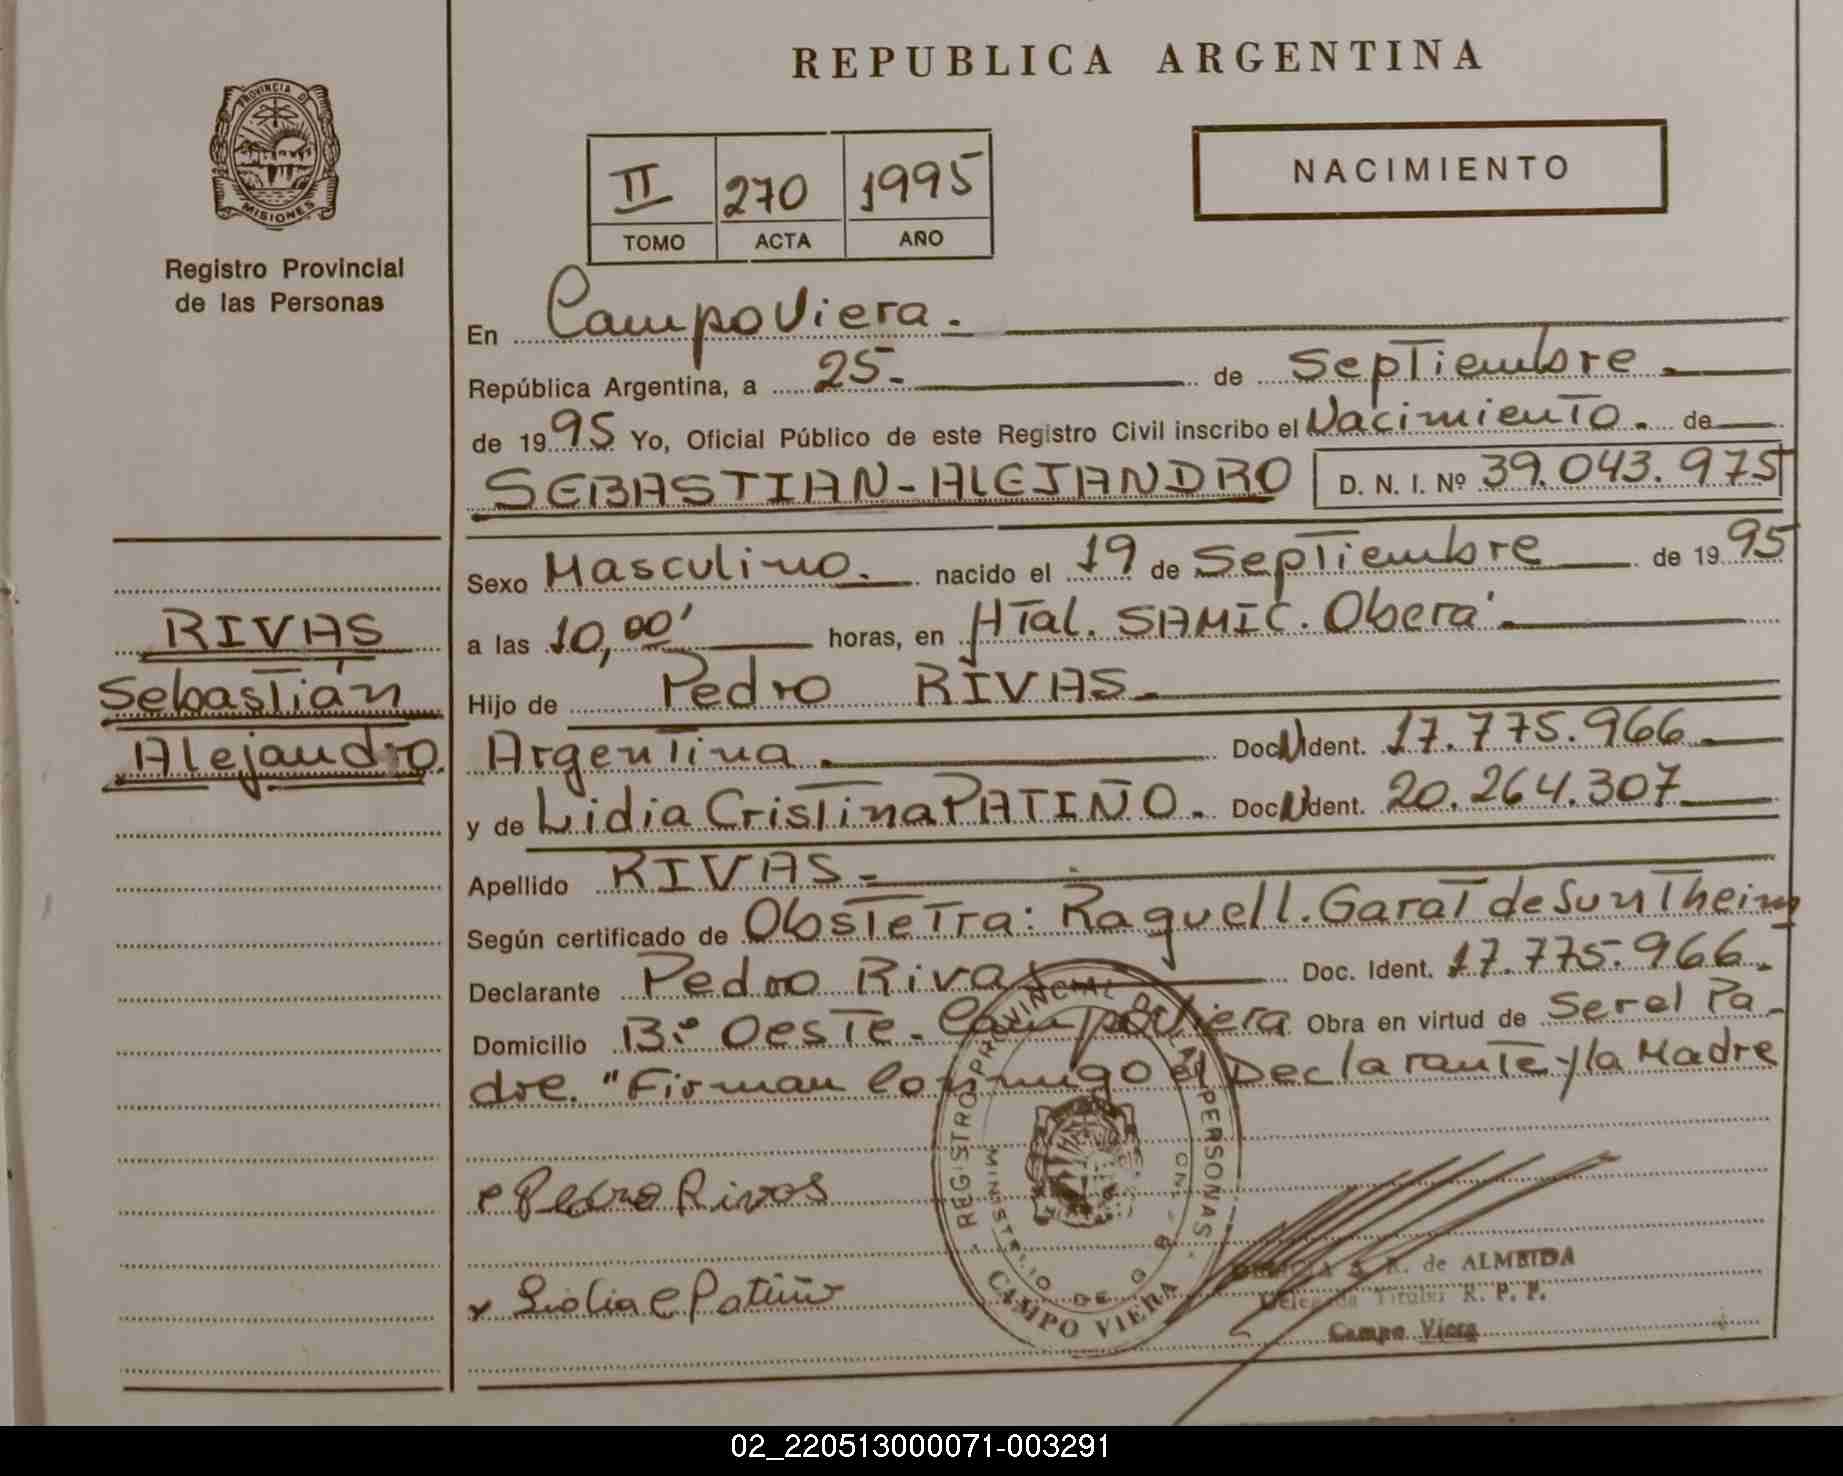 REPUBLICA ARGENTINA
PROVINCIA DE
MISIONES
Registro Provincial
de las Personas
II 270 1995
TOMO ACTA AÑO
NACIMIENTO
En Campo Viera.
República Argentina, a 25- de Septiembre
de 1995 Yo, Oficial Público de este Registro Civil inscribo el Nacimiento. de
SEBASTIAN-ALEJANDRO D. N. I. Nº 39.043.975
Sexo Masculino. nacido el 19 de Septiembre de 1995
a las 10,00' horas, en HTal. SAMIC. Oberá.
Hijo de Pedro RIVAS.
Argentina. Doc. Ident. 17.775.966
y de Lidia Cristina PATIÑO. Doc. Ident. 20.264.307
Apellido RIVAS-
Según certificado de Obstetra: Raquel l. Garat de
Declarante Pedro Rivas Doc. Ident. 17.775.966.
Domicilio Bº Oeste. Campo Viera Obra en virtud de Ser el Pa-
dre. "Firman conmigo el Declarante y la Madre
RIVAS
Sebastián
Alejandro.
Pedro Rivas
x Lidia C Patiño
REGISTRO PROVINCIAL DE LAS PERSONAS
MINISTERIO DE GOB
CAMPO VIERA
R. de ALMEIDA
Delegada Titular R. P. P.
Campo Viera
02_220513000071-003291